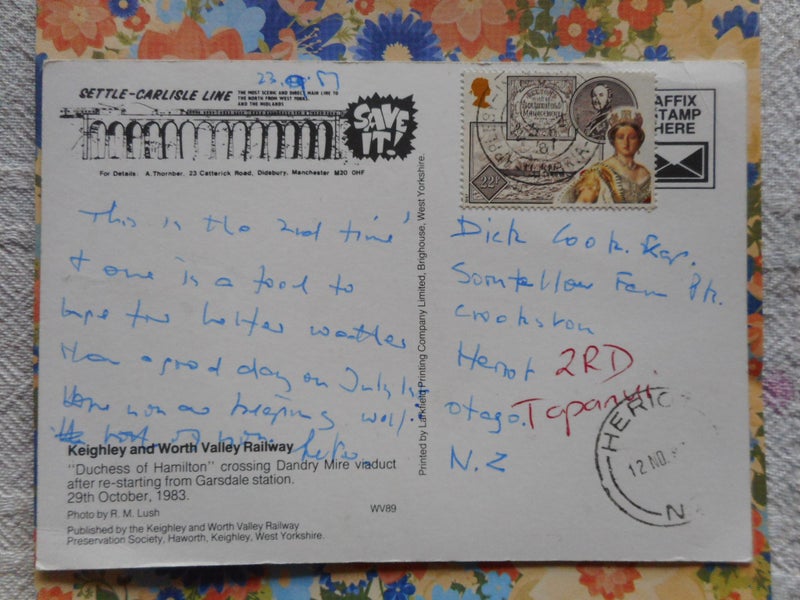 SETTLE-CARLISLE LINE
THE MOST SCENIC AND DIRECT MAIN LINE TO
THE NORTH FROM WEST YORKS.
AND THE MIDLANDS
SAVE
IT!
For Details: A.Thornber, 23 Catterick Road, Didsbury, Manchester M20 0HF
This is the 2nd time
& one is a fool to
hope for better weather
than a good day on July
Hope you are keeping well.
Keighley and Worth Valley Railway
"Duchess of Hamilton" crossing Dandry Mire viaduct
after re-starting from Garsdale station.
29th October, 1983.
Photo by R. M. Lush
WV89
Published by the Keighley and Worth Valley Railway
Preservation Society, Haworth, Keighley, West Yorkshire.
Printed by Larkfield Printing Company Limited, Brighouse, West Yorkshire.
22P
AFFIX
STAMP
HERE
Dick Cook. Esq.
Crookston
Heriot 2RD
Otago. Tapanui
N.Z
HERIO
12 NO
N